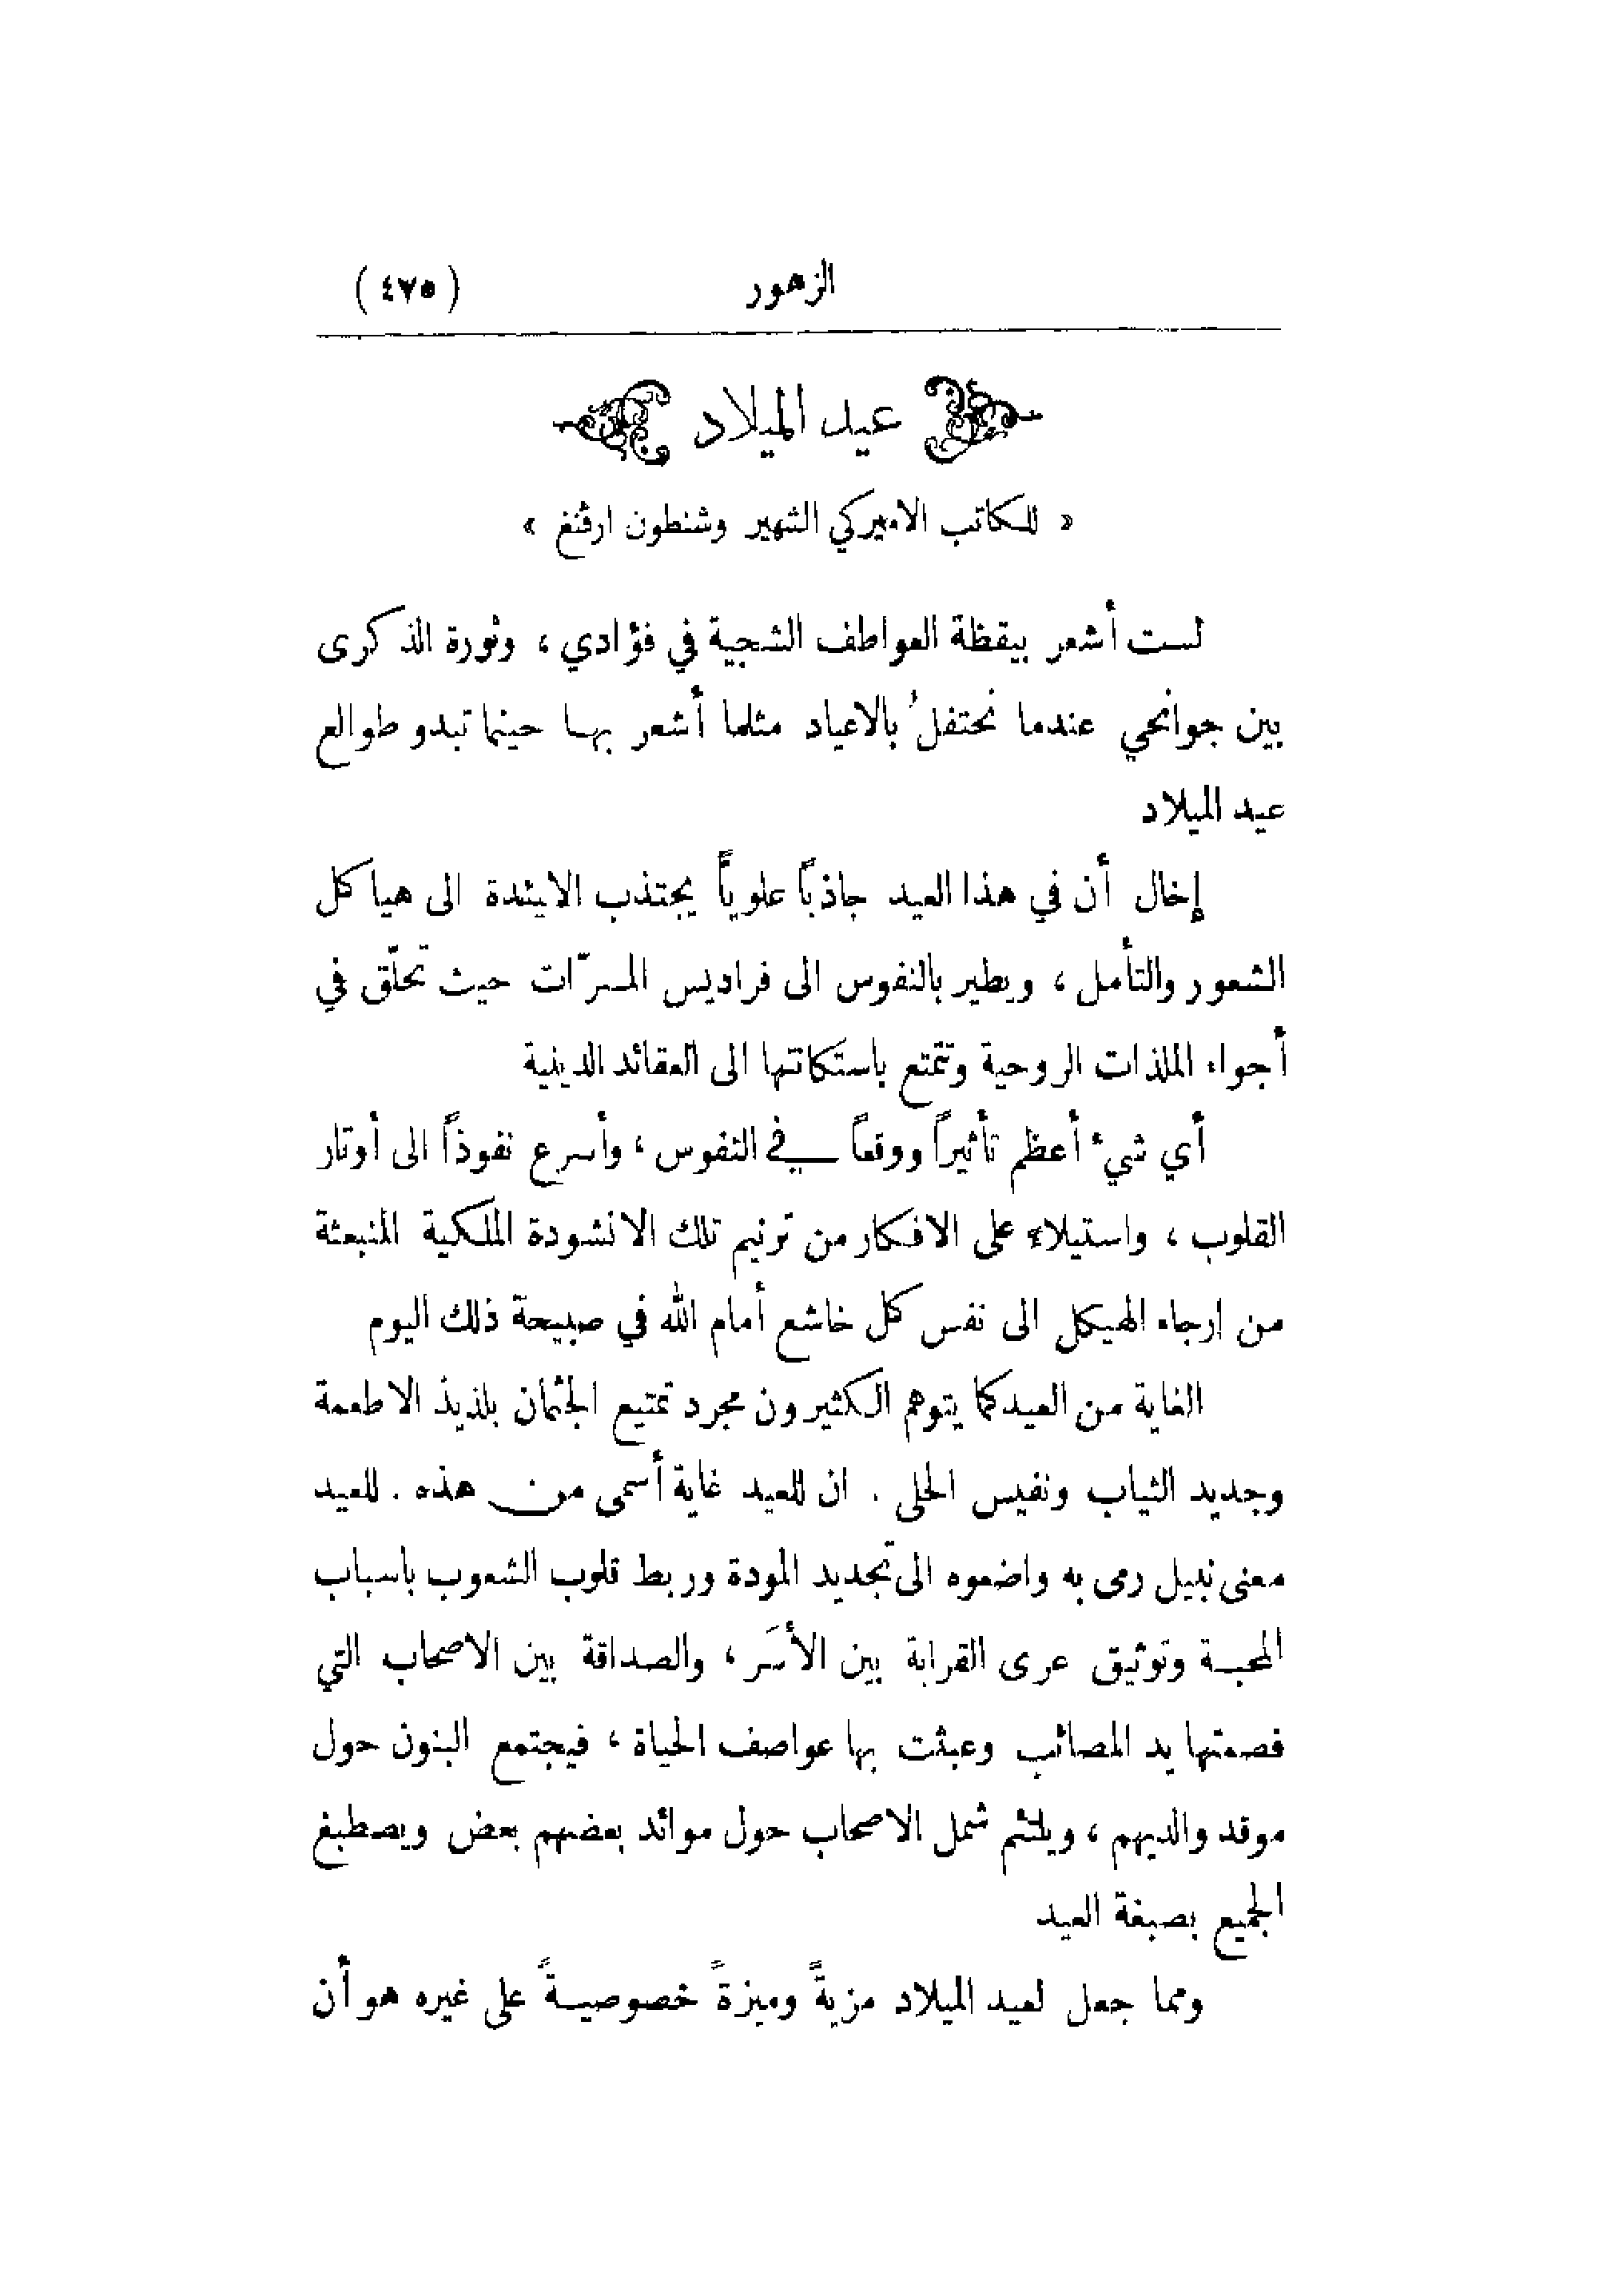 الزهور (٤٧٥)
عيد الميلاد
« للكاتب الاميركي الشهير وشنطون ارڤنغ »
لست أشعر بيقظة العواطف الشجية في فؤادي ، وثورة الذكرى
بين جوانحي عندما نحتفلُ بالاعياد مثلما أشعر بها حينما تبدو طوالع
عيد الميلاد
إخال أن في هذا العيد جاذباً علوياً يجتذب الافئدة الى هياكل
الشعور والتأمل ، ويطير بالنفوس الى فراديس المسرّات حيث تحلّق في
أجواء الملذات الروحية وتتمتع باستكانتها الى العقائد الدينية
أي شيء أعظم تأثيراً ووقعاً في النفوس ، وأسرع نفوذاً الى أوتار
القلوب ، واستيلاءً على الافكار من ترنيم تلك الانشودة الملكية المنبعثة
من ارجاء الهيكل الى نفس كل خاشع أمام الله في صبيحة ذلك اليوم
الغاية من العيد كما يتوهم الكثيرون مجرد تمتيع الجثمان بلذيذ الاطعمة
وجديد الثياب ونفيس الحلى . ان للعيد غاية أسمى من هذه . للعيد
معنى نبيل رمى به واضعوه الى تجديد المودة وربط قلوب الشعوب باسباب
المحبة وتوثيق عرى القرابة بين الأسَر ، والصداقة بين الاصحاب التي
فصمتها يد المصائب وعبثت بها عواصف الحياة ، فيجتمع البنون حول
موقد والديهم ، ويلتئم شمل الاصحاب حول موائد بعضهم بعض ويصطبغ
الجميع بصبغة العيد
ومما جعل لعيد الميلاد مزيةً وميزةً خصوصيةً على غيره هو أن